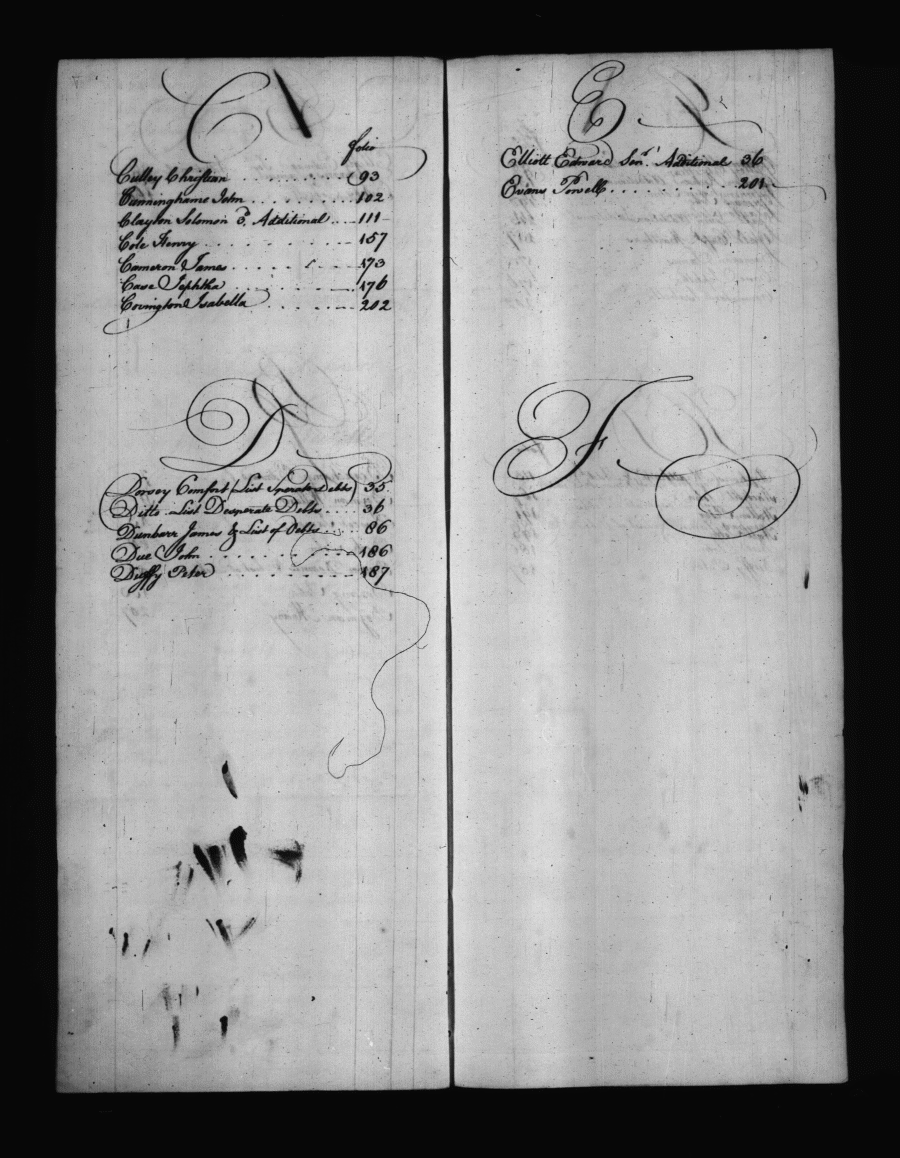 C
folio
Culley Christian 93
Cunninghame John 102
Clayton Solomon Additional 111
Cole Henry 157
Cameron James 173
Case Jephtha 176
Covington Isabella 202
D
Dorsey Comfort (List Sperate Debts) 35
Ditto List Desperate Debts 36
Dunbarr James List of Debts 86
Due John 186
Duffy Peter 187
E
Elliott Edward Senr. Additional 36
Evans Powell 201
F